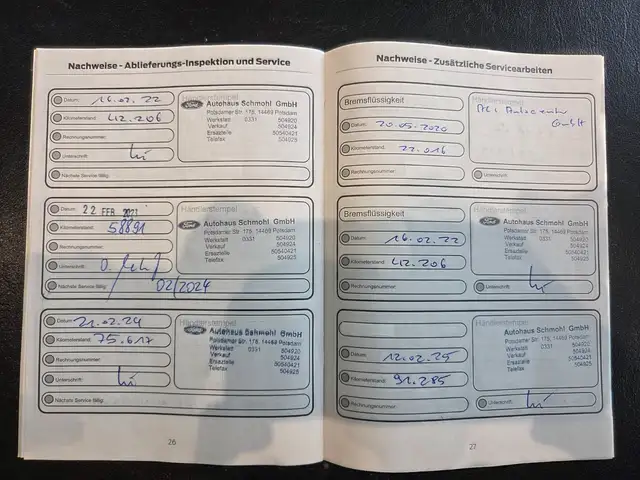 Nachweise - Ablieferungs-Inspektion und Service
Datum: 16.02.22
Kilometerstand: 42.206
Rechnungsnummer:
Unterschrift:
Nächste Service fällig:
Händlerstempel
Ford
Autohaus Schmohl GmbH
Potsdamer Str. 178, 14469 Potsdam
Werkstatt 0331 504920
Verkauf 504924
Ersatzteile 50540421
Telefax 504925
Datum: 22 FEB. 2021
Kilometerstand: 58891
Rechnungsnummer:
Unterschrift:
Nächste Service fällig: 02/2024
Händlerstempel
Ford
Autohaus Schmohl GmbH
Potsdamer Str. 178, 14469 Potsdam
Werkstatt 0331 504920
Verkauf 504924
Ersatzteile 50540421
Telefax 504925
Datum: 21.02.24
Kilometerstand: 75.617
Rechnungsnummer:
Unterschrift:
Nächste Service fällig:
Händlerstempel
Ford
Autohaus Schmohl GmbH
Potsdamer Str. 178, 14469 Potsdam
Werkstatt 0331 504920
Verkauf 504924
Ersatzteile 50540421
Telefax 504925
26
Nachweise - Zusätzliche Servicearbeiten
Bremsflüssigkeit
Datum: 20.05.2020
Kilometerstand: 22.016
Rechnungsnummer:
Händlerstempel
GmbH
Unterschrift:
Bremsflüssigkeit
Datum: 16.02.22
Kilometerstand: 42.206
Rechnungsnummer:
Händlerstempel
Ford
Autohaus Schmohl GmbH
Potsdamer Str. 178, 14469 Potsdam
Werkstatt 0331 504920
Verkauf 504924
Ersatzteile 50540421
Telefax 504925
Unterschrift:
Datum: 12.02.25
Kilometerstand: 91.285
Rechnungsnummer:
Händlerstempel
Ford
Autohaus Schmohl GmbH
Potsdamer Str. 178, 14469 Potsdam
Werkstatt 0331 504920
Verkauf 504924
Ersatzteile 50540421
Telefax 504925
Unterschrift:
27